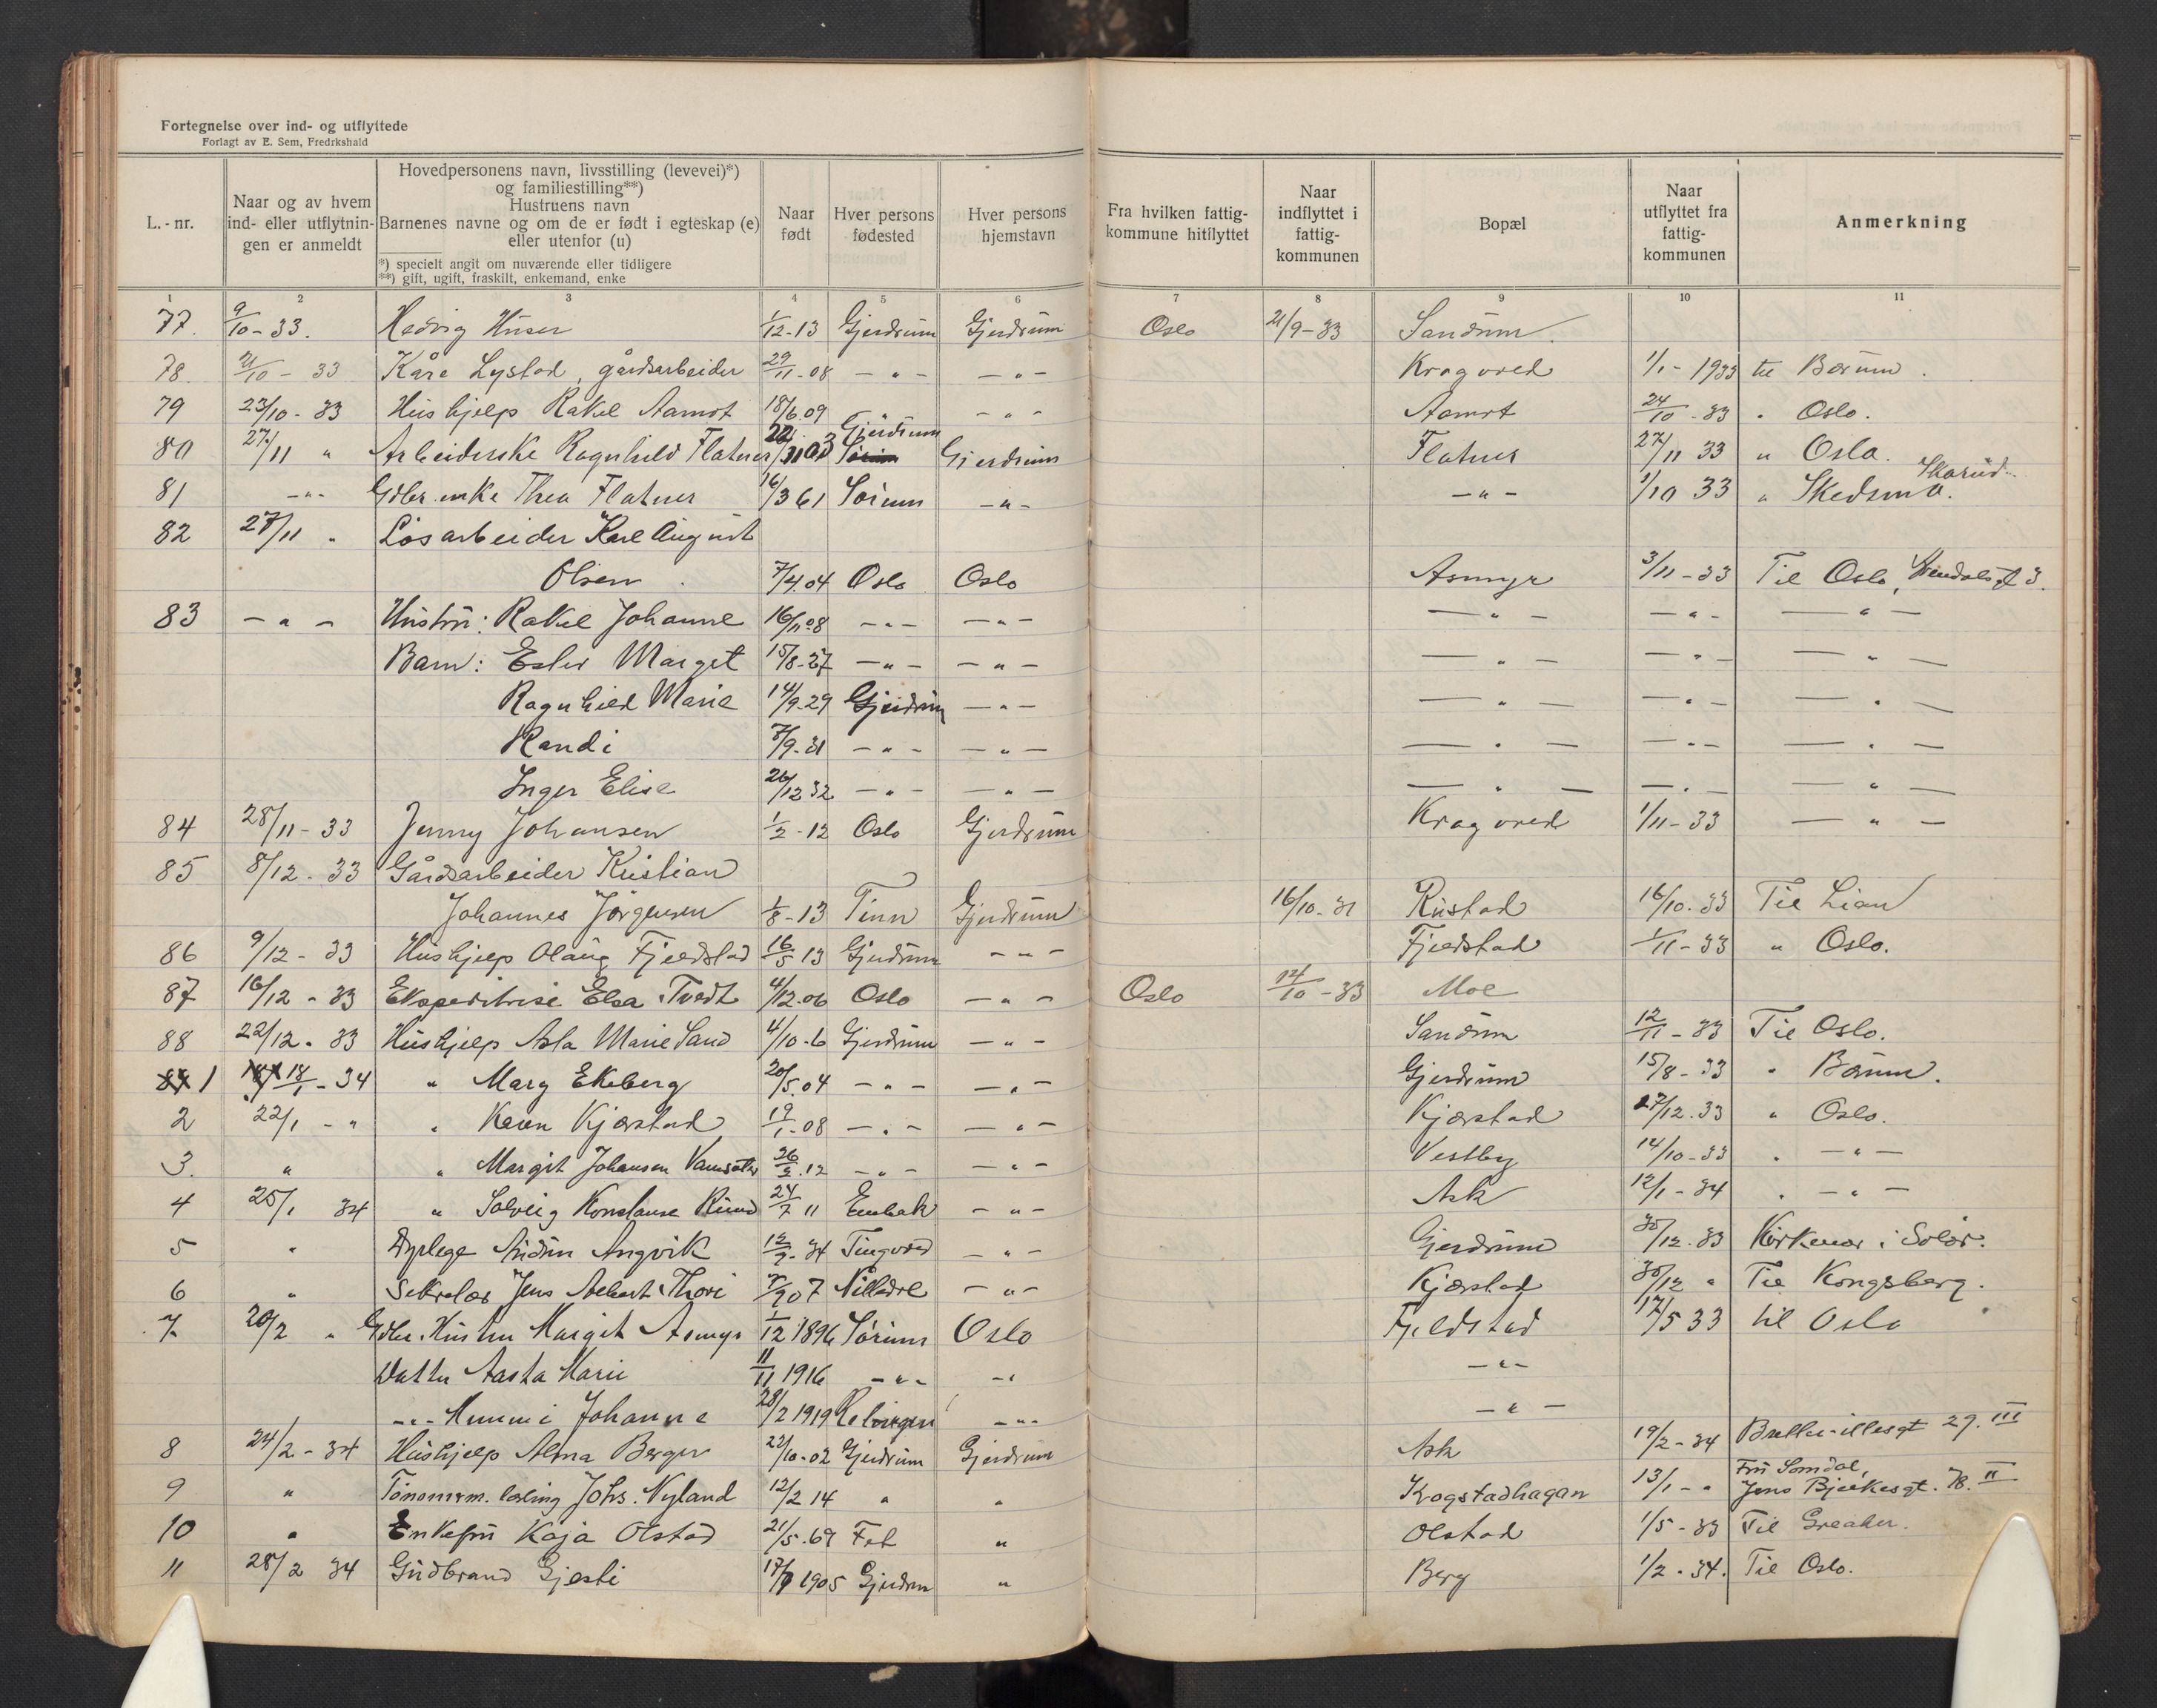 Fortegnelse over ind- og utflyttede
Forlagt av E. Sem, Fredrkshald
L.-nr. | Naar og av hvem ind- eller utflytningen er anmeldt | Hovedpersonens navn, livsstilling (levevei)*) og familiestilling**) Hustruens navn Barnenes navne og om de er født i egteskap (e) eller utenfor (u) *) specielt angit om nuværende eller tidligere **) gift, ugift, fraskilt, enkemand, enke | Naar født | Hver persons fødested | Hver persons hjemstavn | Fra hvilken fattigkommune hitflyttet | Naar indflyttet i fattigkommunen | Bopæl | Naar utflyttet fra fattigkommunen | Anmerkning
1 2 3 4 5 6 7 8 9 10 11
77. 9/10-33. Hedvig Huser 1/12-13 Gjerdrum Gjerdrum Oslo 21/9-33 Sandum.
78. 21/10-33 Kåre Lystad, gårdsarbeider 29/11-08 -"- -"- Kragvred 1/1-1933 til Bærum.
79 23/10-33 Hushjelp Rakel Aamot 18/6.09 -"- -"- Aamot 24/10-33 " Oslo.
80 27/11 " Arbeiderske Ragnhild Flatner 22/11 03 Gjerdrum Gjerdrum Flatner 27/11 33 " Oslo.
81 -"- Gdbr.enke Thea Flatner 16/3 61 Sørum -"- -"- 1/10 33 " Skedsmo. Skarud
82 27/11 " Løsarbeider Karl August
Olsen. 7/4.04 Oslo Oslo Asmyr 3/11-33 Til Oslo, 3.
83 -"- Hustru: Rakel Johanne 16/11 08 -"- -"- -"- -"- -"-
Barn: Ester Marget 15/8-27 -"- -"- -"- -"- -"-
Ragnhild Marie 14/9-29 Gjerdrum -"- -"- -"- -"-
Randi 7/9-31 -"- -"- -"- -"- -"-
Inger Elise 26/12 32 -"- -"- -"- -"- -"-
84 28/11-33 Jenny Johansen 1/2-12 Oslo Gjerdrum Kragvred 1/11-33 -"-
85 8/12-33 Gårdsarbeider Kristian
Johannes Jørgensen 1/8-13 Tinn Gjerdrum 16/10-31 Rustad 16/10-33 Til Lian
86 9/12-33 Hushjelp Olaug Fjeldstad 16/5 13 Gjerdrum -"- Fjeldstad 1/11-33 " Oslo.
87 16/12-33 Ekspeditrise Elsa Tvedt 4/12.06 Oslo -"- Oslo 14/10-33 Moe
88 22/12-33 Hushjelp Asta Marie Sand 4/10-6 Gjerdrum -"- Sandum 12/11-33 Til Oslo.
1 18/1-34 " Mary Ekeberg 20/5.04 -"- -"- Gjerdrum 15/8-33 " Bærum.
2 22/1-" " Karen Kjærstad 19/1-08 -"- -"- Kjærstad 27/12.33 " Oslo.
3. " " Margit Johansen 26/2.12 -"- -"- Vestby 14/10-33 " -"-
4 25/1 34 " Solveig Konstanse Ruud 24/7 11 Enebak -"- Ask 12/1-34 " -"-
5 " Dyrlege Audun Angvik 12/9-34 Tingvold -"- Gjerdrum 30/12-33 Kirkenær i Solør.
6 " Sekretær Jens Albert Thori 7/9 07 -"- Kjærstad 30/12 " Til Kongsberg.
7. 20/2 " Gdbr. Hustru Margit Asmyr 1/12 1896 Sørum Oslo Fjeldstad 17/5 33 til Oslo
Datter Aasta Marie 11/11 1916 -"- -"- -"-
-"- Johanne 28/2 1919 -"- -"-
8 24/2-34 Hushjelp Alma Berger 22/10-02 Gjerdrum Gjerdrum Ask 19/2-34 29. III
9 " Johs. Nyland 12/2 14 " " Krogstadhagan 13/1-" Fru Somdal, Jens Bjelkesgt. 78. II
10 " Enkefru Kaja Olstad 21/5.69 Fet " Olstad 1/5-33 Til Greaker.
11 28/2 34 Gudbrand Gjesti 17/9 1905 Gjerdrum " Berg 1/2-34. Til Oslo.